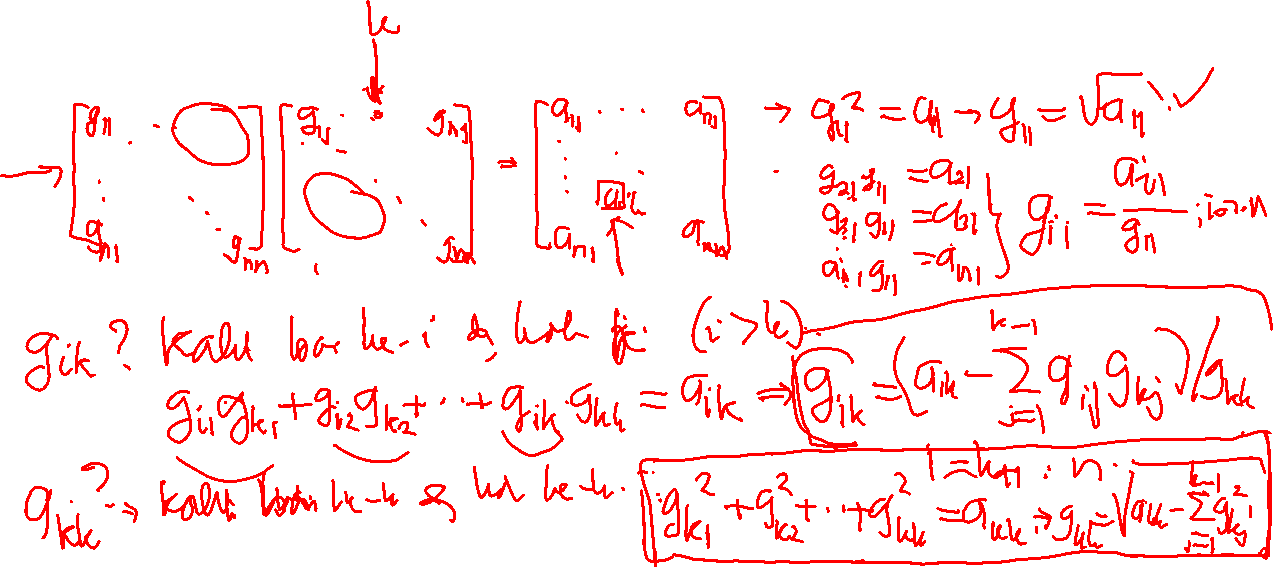 k
→ [g₁₁ ⋱ g_{n1} g_{nn}] [g₁₁ ⋱ g_{n1} g_{nn}] = [a₁₁ ⋯ a_{n1} a_{ik} a_{n1} a_{nn}] → g₁₁² = a₁₁ → g₁₁ = √a₁₁ ✓
g₂₁ g₁₁ = a₂₁
g₃₁ g₁₁ = a₃₁
a_{n1} g₁₁ = a_{n1}
} g_{i1} = a_{i1} / g₁₁ ; i=2..n
g_{ik}? kali baris ke-i dg kol ke (i > k)
g_{i1} g_{k1} + g_{i2} g_{k2} + ⋯ + g_{ik} g_{kk} = a_{ik} ⇒ g_{ik} = (a_{ik} − Σ_{j=1}^{k−1} g_{ij} g_{kj}) / g_{kk}
i = k+1 .. n
g_{kk}? → kali baris k-k dg kol ke-k.
g_{k1}² + g_{k2}² + ⋯ + g_{kk}² = a_{kk} → g_{kk} = √(a_{kk} − Σ_{j=1}^{k−1} g_{kj}²)